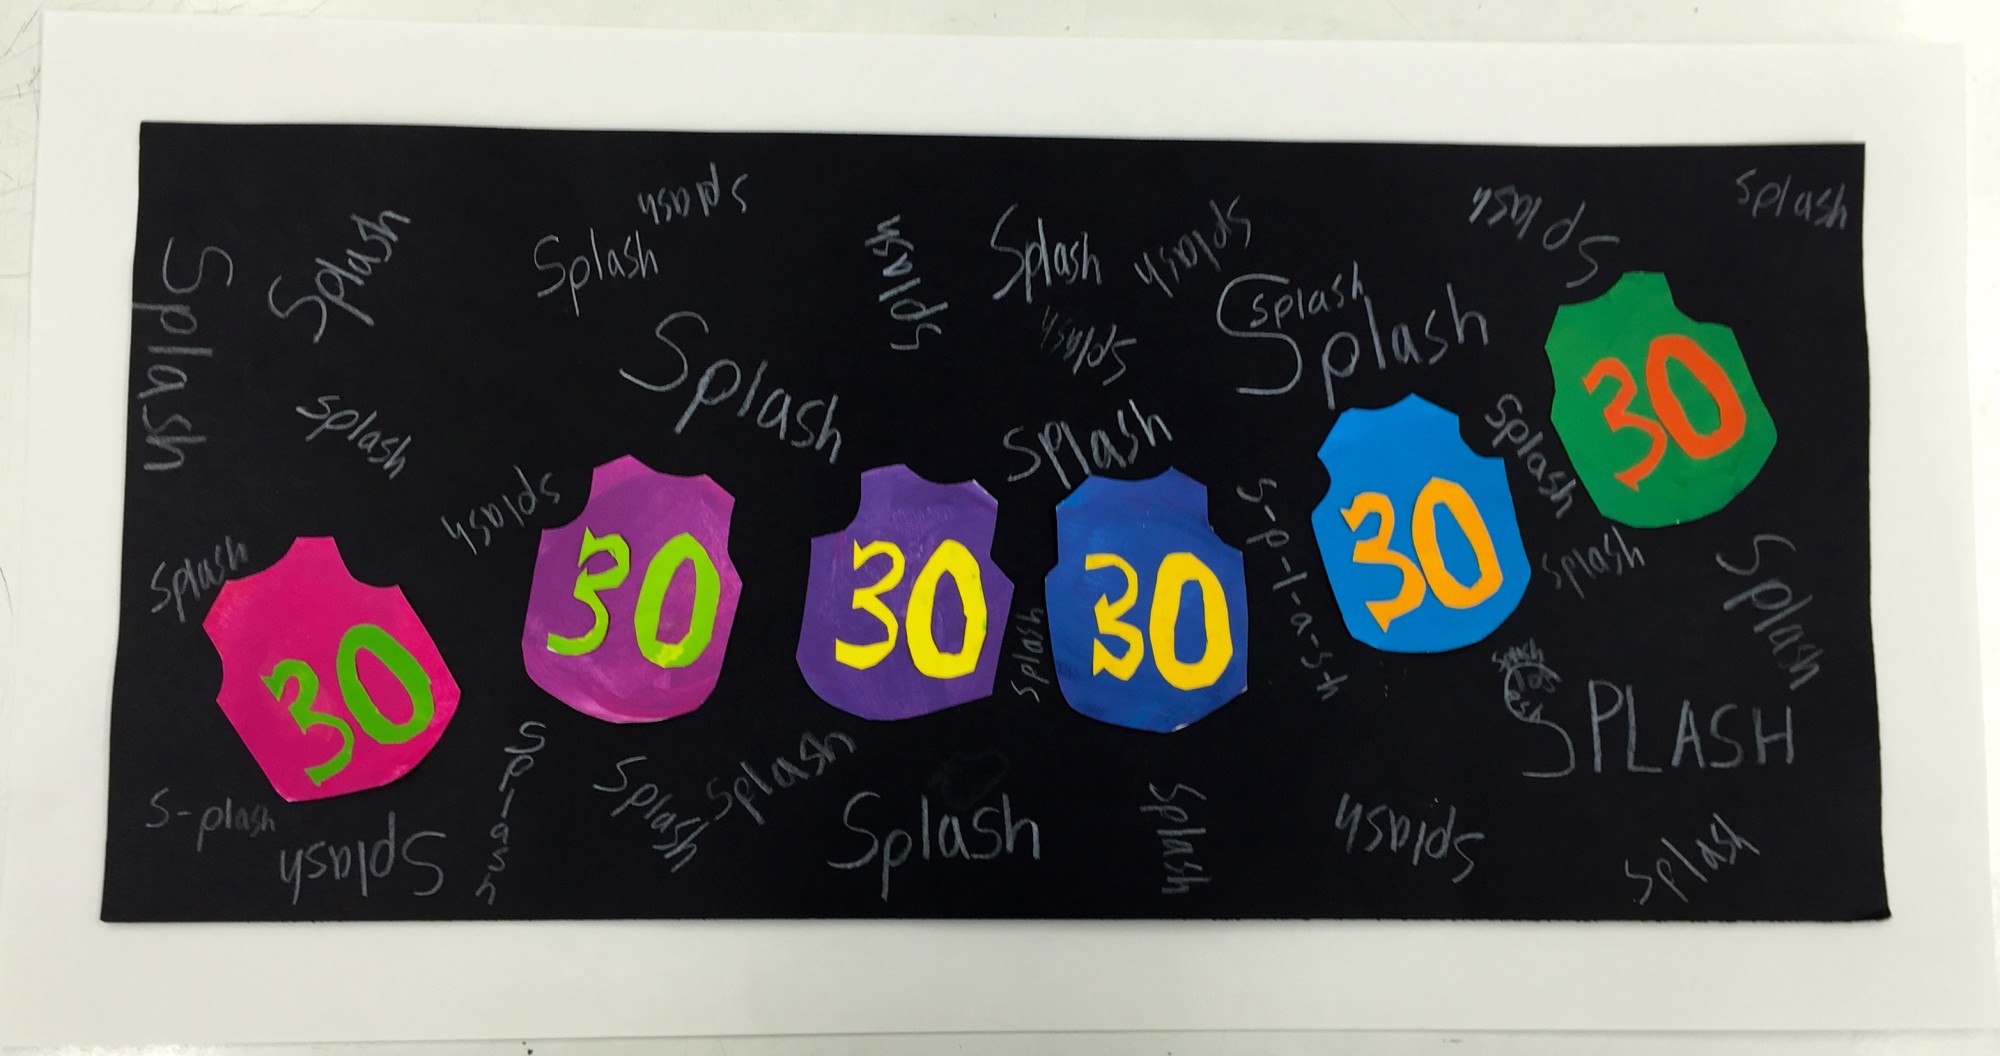 Splash
Splash
Splash
splash
splash
Splash
splash
splash
splash
Splash
splash
Splash
splash
splash
Splash
Splash
splash
splash
30
30
30
30
30
30
splash
s-p-l-a-s-h
splash
Splash
splash
splash
SPLASH
s-plash
Splash
Splash
Splash
Splash
Splash
Splash
splash
splash